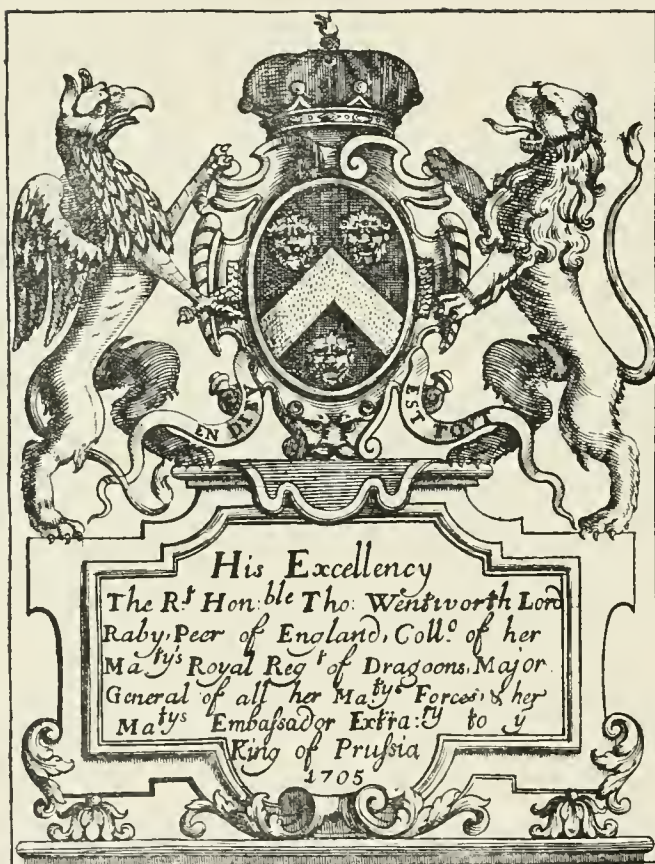 EN DIEV
EST TOVT
His Excellency
The Rᵗ Hon:ᵇˡᵉ Tho: Wentworth Lord
Raby, Peer of England, Coll.º of her
Maᵗʸˢ Royal Regᵗ of Dragoons, Major
General of all her Maᵗʸˢ Forces, & her
Maᵗʸˢ Embaſsador Extra:ʳʸ to y
King of Pruſsia
1705